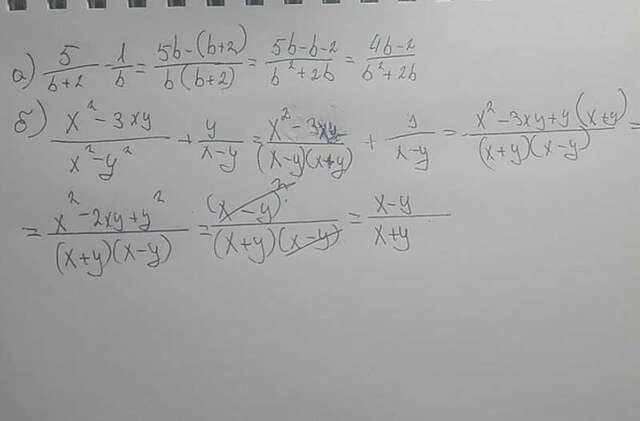 а) 5/(b+2) - 1/b = (5b-(b+2))/(b(b+2)) = (5b-b-2)/(b²+2b) = (4b-2)/(b²+2b)
б) (x²-3xy)/(x²-y²) + y/(x-y) = (x²-3xy)/((x-y)(x+y)) + y/(x-y) = (x²-3xy+y(x+y))/((x+y)(x-y)) =
= (x²-2xy+y²)/((x+y)(x-y)) = (x-y)²/((x+y)(x-y)) = (x-y)/(x+y)